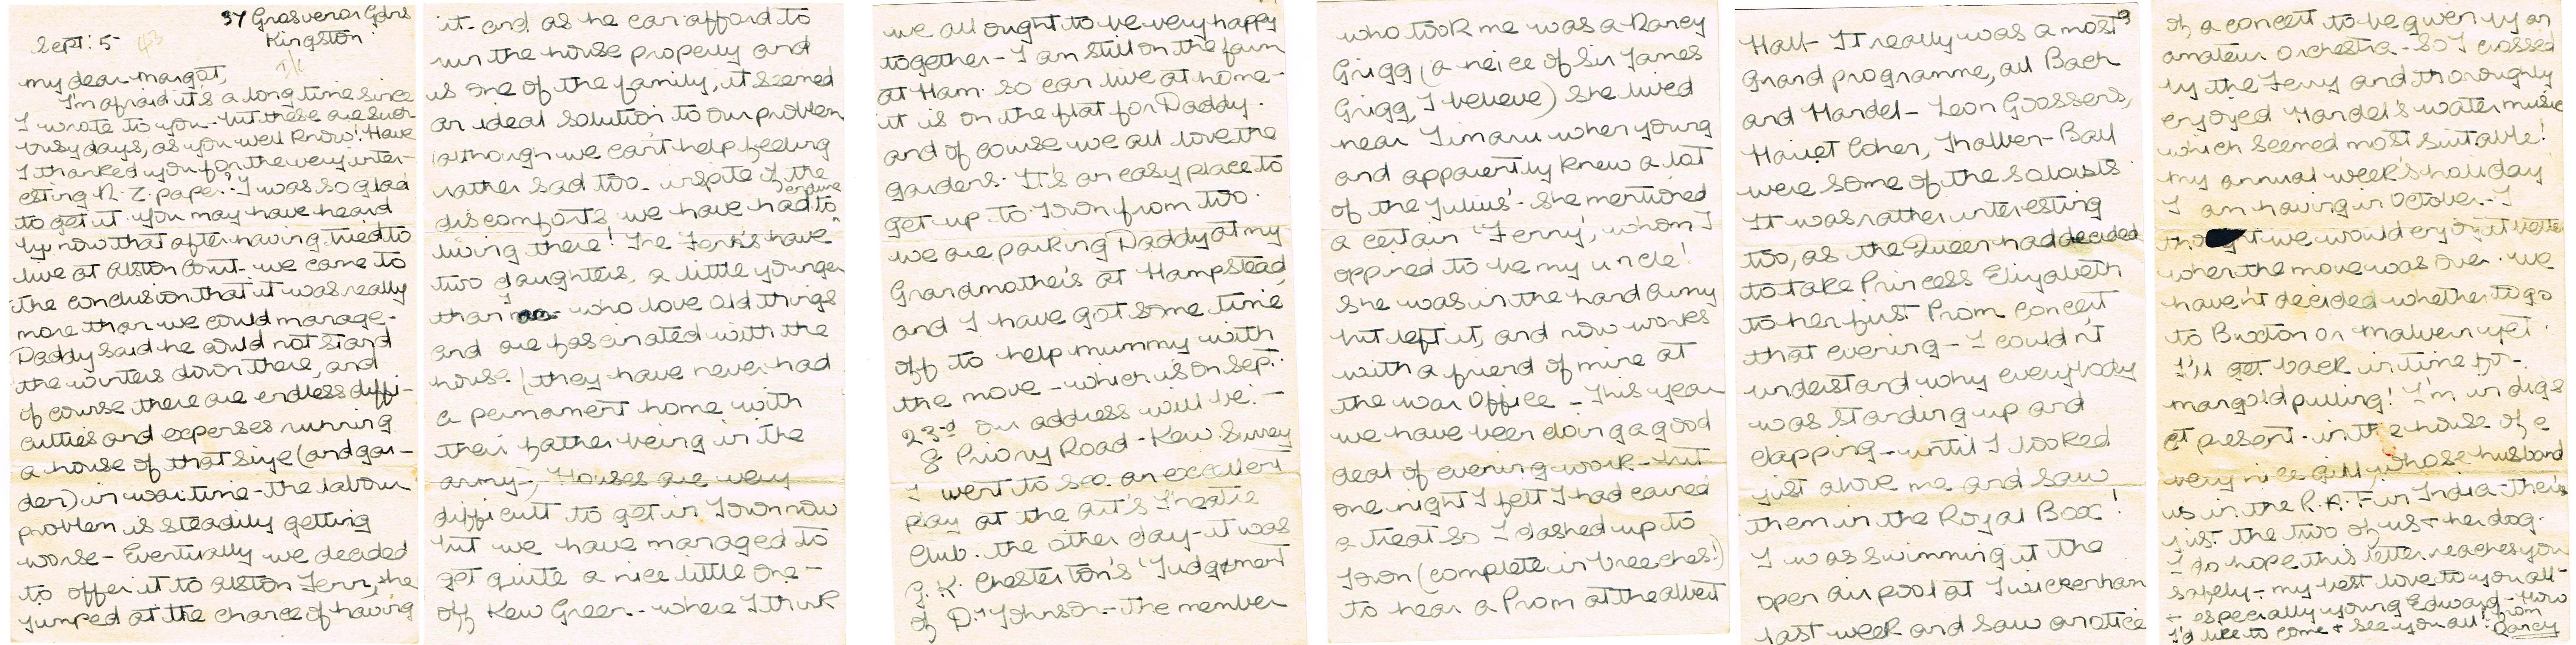 37 Grosvenor Gdns
Kingston
Sept: 5 43
my dear Margot,
I'm afraid it's a long time since
I wrote to you - but these are such
busy days, as you well know! Have
I thanked you for the very inter-
esting N.Z. paper? I was so glad
to get it. You may have heard
by now that after having tried to
live at Alston Court - we came to
the conclusion that it was really
more than we could manage -
Daddy said he could not stand
the winters down there, and
of course there are endless diffi-
culties and expenses running
a house of that size (and gar-
den) in wartime - the labour
problem is steadily getting
worse - Eventually we decided
to offer it to Alston Fenn, he
jumped at the chance of having
it - and as he can afford to
run the house properly and
is one of the family, it seemed
an ideal solution to our problem
(although we can't help feeling
rather sad too - inspite of the
discomforts we have had to endure
living there! The Fenn's have
two daughters, a little younger
than I who love old things
and are fascinated with the
house! (they have never had
a permanent home with
their father being in the
army -) Houses are very
difficult to get in Town now
but we have managed to
get quite a nice little one -
off Kew Green - where I think
we all ought to be very happy
together - I am still on the farm
at Ham. so can live at home -
it is on the flat for Daddy.
and of course we all love the
gardens. It's an easy place to
get up to Town from too.
We are parking Daddy at my
Grandmother's at Hampstead
and I have got some time
off to help mummy with
the move - which is on Sep:
23rd our address will be: -
8 Priory Road - Kew. Surrey
I went to see an excellent
play at the Art's Theatre
Club. the other day - it was
G. K. Chesterton's 'Judgement
of Dr Johnson - the member
who took me was a Nancy
Grigg (a neice of Sir James
Grigg, I believe) she lived
near Timaru when young
and apparently knew a lot
of the Julius' - she mentioned
a certain 'Ferry', whom I
oppined to be my uncle!
She was in the land army
but left it, and now works
with a friend of mine at
the War Office - This year
we have been doing a good
deal of evening work - but
one night I felt I had earned
a treat so I dashed up to
Town (complete in breeches!)
to hear a Prom at the Albert
Hall - It really was a most
Grand programme, all Bach
and Handel - Leon Goossens,
Harriet Cohen, Thalben-Ball
were some of the soloists
It was rather interesting
too, as the Queen had decided
to take Princess Elizabeth
to her first Prom concert
that evening - I couldn't
understand why everybody
was standing up and
clapping - until I looked
just above me and saw
them in the Royal Box!
I was swimming at the
open air pool at Twickenham
last week and saw a notice
of a concert to be given by an
amateur orchestra - so I crossed
by the Ferry and thoroughly
enjoyed Handel's water music
which seemed most suitable!
My annual week's holiday
I am having in October - I
thought we would enjoy it better
when the move was over. We
haven't decided whether to go
to Buxton or Malvern yet.
I'll get back in time for
mangold pulling! I'm in digs
at present - in the house of a
very nice girl, whose husband
is in the R.A.F in India - there's
just the two of us & her dog.
I do hope this letter reaches you
safely - my best love to you all -
& especially young Edward - How
I'd like to come & see you all! from
Nancy